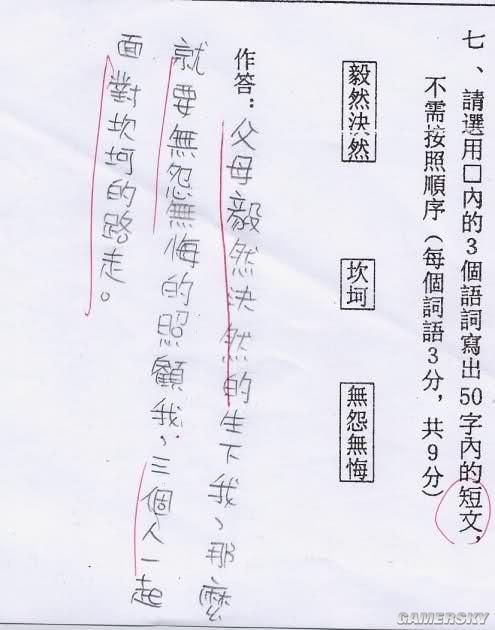 七、請選用□內的3個語詞寫出50字內的短文，
不需按照順序（每個詞語3分，共9分）
毅然決然
坎坷
無怨無悔
作答：父母毅然決然的生下我、那麼
就要無怨無悔的照顧我、三個人一起
面對坎坷的路走。
GAMERSKY